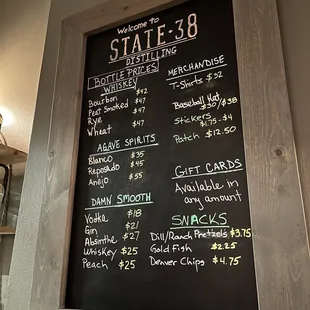 Welcome to
STATE-38
DISTILLING
BOTTLE PRICES
WHISKEY
Bourbon $42
Peat Smoked $47
Rye $47
Wheat $47
AGAVE SPIRITS
Blanco $35
Reposado $45
Añejo $55
DAMN SMOOTH
Vodka $18
Gin $21
Absinthe $27
Whiskey $25
Peach $25
MERCHANDISE
T-Shirts $32
Baseball Hat
$30/$38
Stickers
$1.75-$4
Patch $12.50
GIFT CARDS
Available in
any amount
SNACKS
Dill/Ranch Pretzels $3.75
Gold Fish $2.25
Denver Chips $4.75